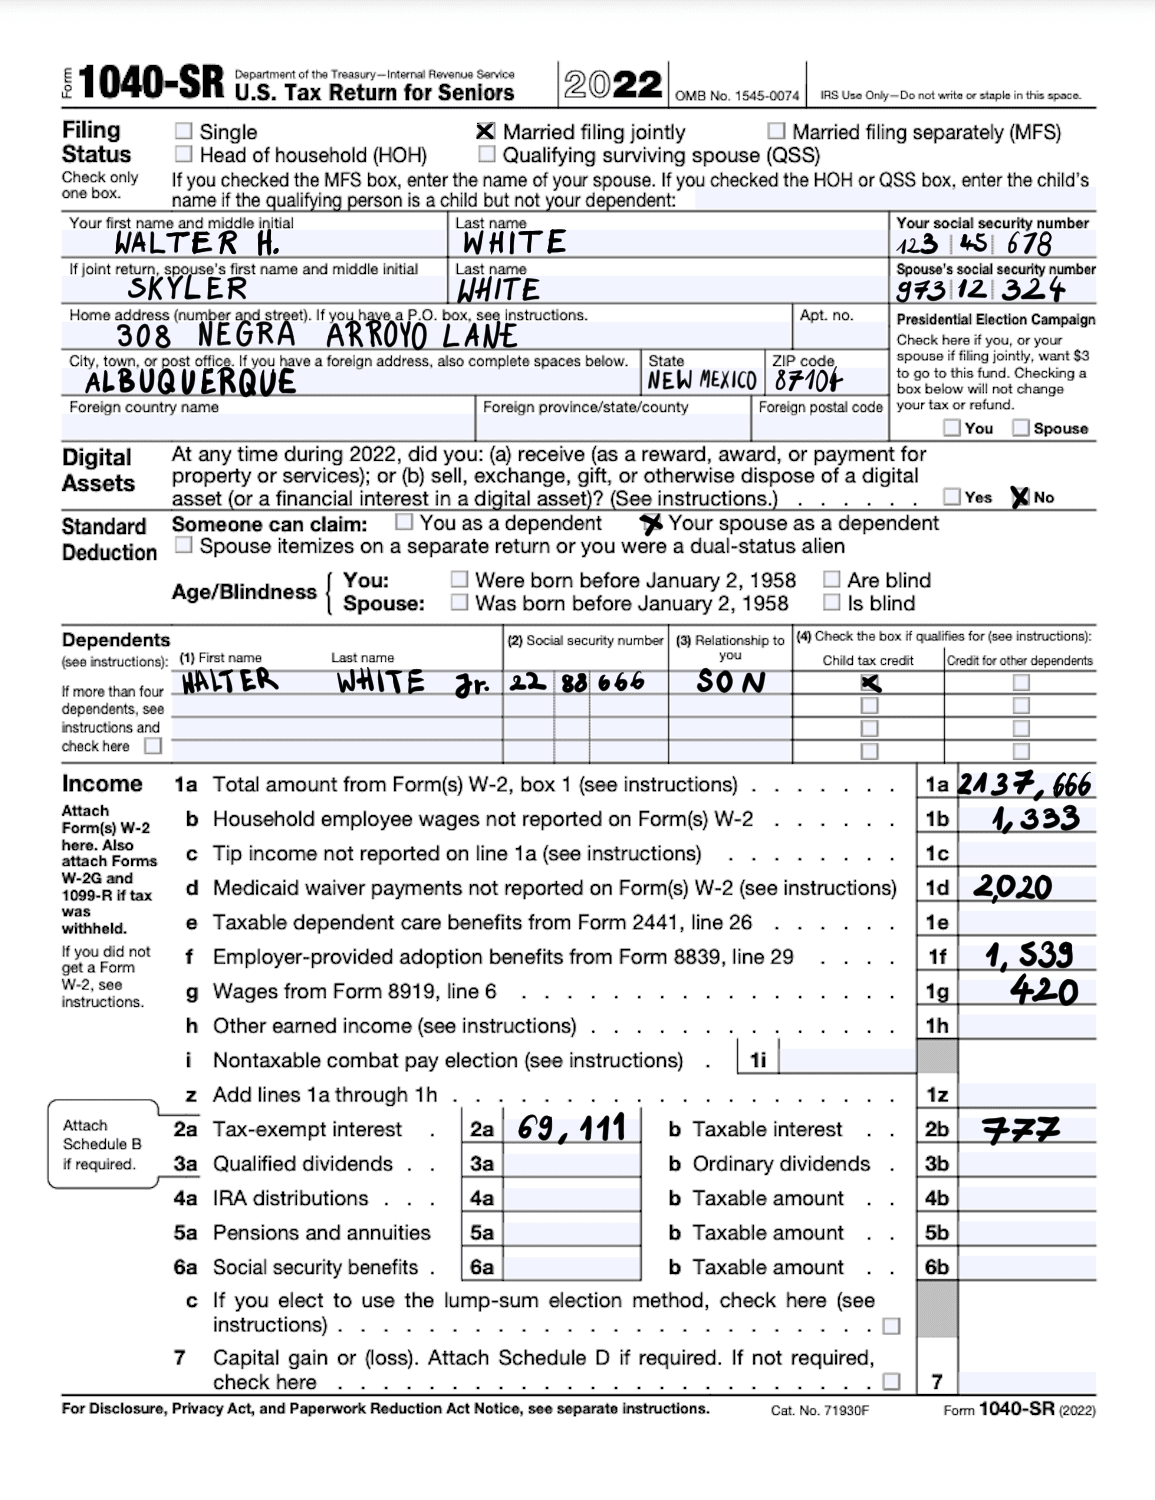 Form 1040-SR Department of the Treasury—Internal Revenue Service
U.S. Tax Return for Seniors 2022 OMB No. 1545-0074 IRS Use Only—Do not write or staple in this space.
Filing Status
Check only one box.
Single Married filing jointly Married filing separately (MFS)
Head of household (HOH) Qualifying surviving spouse (QSS)
If you checked the MFS box, enter the name of your spouse. If you checked the HOH or QSS box, enter the child's
name if the qualifying person is a child but not your dependent:
Your first name and middle initial Last name Your social security number
WALTER H. WHITE 123 45 678
If joint return, spouse's first name and middle initial Last name Spouse's social security number
SKYLER WHITE 973 12 324
Home address (number and street). If you have a P.O. box, see instructions. Apt. no.
308 NEGRA ARROYO LANE
City, town, or post office. If you have a foreign address, also complete spaces below. State ZIP code
ALBUQUERQUE NEW MEXICO 87104
Foreign country name Foreign province/state/county Foreign postal code
Presidential Election Campaign
Check here if you, or your
spouse if filing jointly, want $3
to go to this fund. Checking a
box below will not change
your tax or refund.
You Spouse
Digital Assets
At any time during 2022, did you: (a) receive (as a reward, award, or payment for
property or services); or (b) sell, exchange, gift, or otherwise dispose of a digital
asset (or a financial interest in a digital asset)? (See instructions.) . . . . . . Yes No
Standard Deduction
Someone can claim: You as a dependent Your spouse as a dependent
Spouse itemizes on a separate return or you were a dual-status alien
Age/Blindness
You: Were born before January 2, 1958 Are blind
Spouse: Was born before January 2, 1958 Is blind
Dependents
(see instructions):
If more than four
dependents, see
instructions and
check here
(1) First name Last name (2) Social security number (3) Relationship to you (4) Check the box if qualifies for (see instructions):
Child tax credit Credit for other dependents
WALTER WHITE Jr. 22 88 666 SON
Income
Attach
Form(s) W-2
here. Also
attach Forms
W-2G and
1099-R if tax
was
withheld.
If you did not
get a Form
W-2, see
instructions.
1a Total amount from Form(s) W-2, box 1 (see instructions) . . . . . . . 1a 2137,666
b Household employee wages not reported on Form(s) W-2 . . . . . . 1b 1,333
c Tip income not reported on line 1a (see instructions) . . . . . . . . 1c
d Medicaid waiver payments not reported on Form(s) W-2 (see instructions) 1d 2,020
e Taxable dependent care benefits from Form 2441, line 26 . . . . . . 1e
f Employer-provided adoption benefits from Form 8839, line 29 . . . . 1f 1,539
g Wages from Form 8919, line 6 . . . . . . . . . . . . . . . . . 1g 420
h Other earned income (see instructions) . . . . . . . . . . . . . . 1h
i Nontaxable combat pay election (see instructions) . 1i
z Add lines 1a through 1h . . . . . . . . . . . . . . . . . . . . 1z
Attach
Schedule B
if required.
2a Tax-exempt interest . 2a 69,111 b Taxable interest . . 2b 777
3a Qualified dividends . . 3a b Ordinary dividends . 3b
4a IRA distributions . . . 4a b Taxable amount . . 4b
5a Pensions and annuities 5a b Taxable amount . . 5b
6a Social security benefits . 6a b Taxable amount . . 6b
c If you elect to use the lump-sum election method, check here (see
instructions) . . . . . . . . . . . . . . . . . . . . . . . .
7 Capital gain or (loss). Attach Schedule D if required. If not required,
check here . . . . . . . . . . . . . . . . . . . . . . . . 7
For Disclosure, Privacy Act, and Paperwork Reduction Act Notice, see separate instructions. Cat. No. 71930F Form 1040-SR (2022)